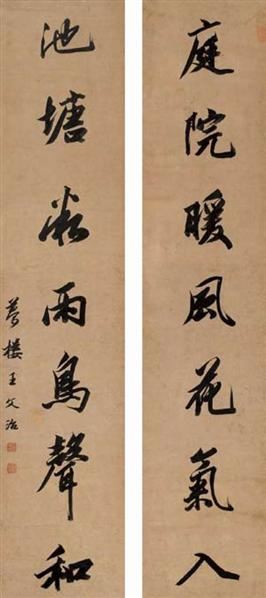 庭院暖風花氣入
池塘雨鳥聲和
夢樓王文治